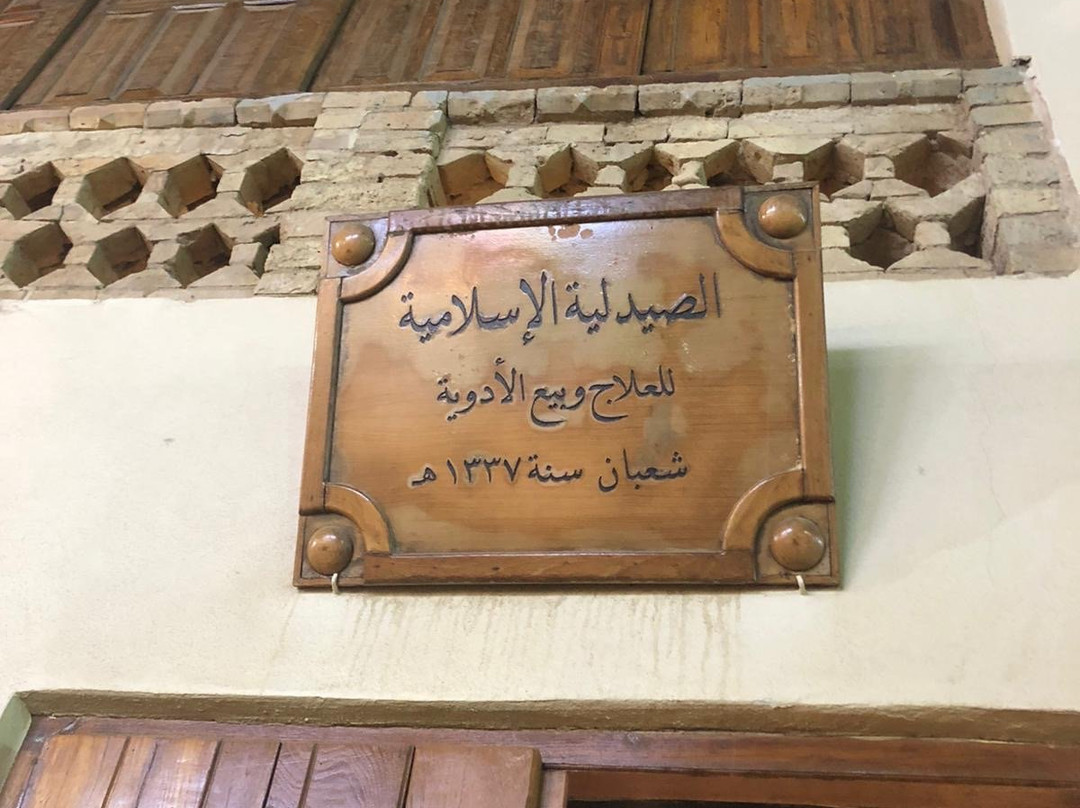 الصيدلية الإسلامية
للعلاج وبيع الأدوية
شعبان سنة ١٣٣٧ هـ